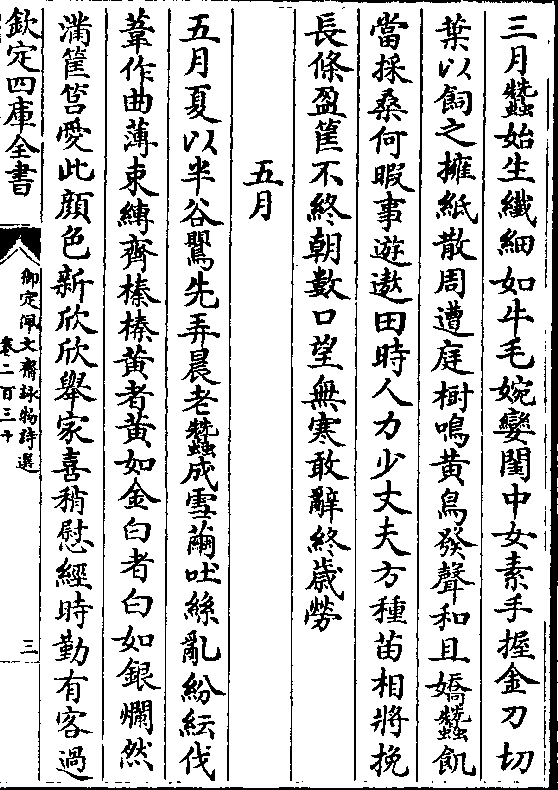 三月蠶始生纖細如牛毛婉孌閨中女素手握金刀切
葉以飼之擁紙散周遭庭樹鳴黃鳥發聲和且嬌蠶飢
當採桑何暇事遊遨田時人力少丈夫方種苗相將挽
長條盈筐不終朝數口望無寒敢辭終歲勞
五月
五月夏以半谷鸎先弄晨老蠶成雪繭吐絲亂紛紜伐
葦作曲薄束縛齊榛榛黃者黃如金白者白如銀爛然
滿筐筥愛此顔色新欣欣舉家喜稍慰經時勤有客過
欽定四庫全書
御定佩文齋詠物詩選
卷二百三十
三